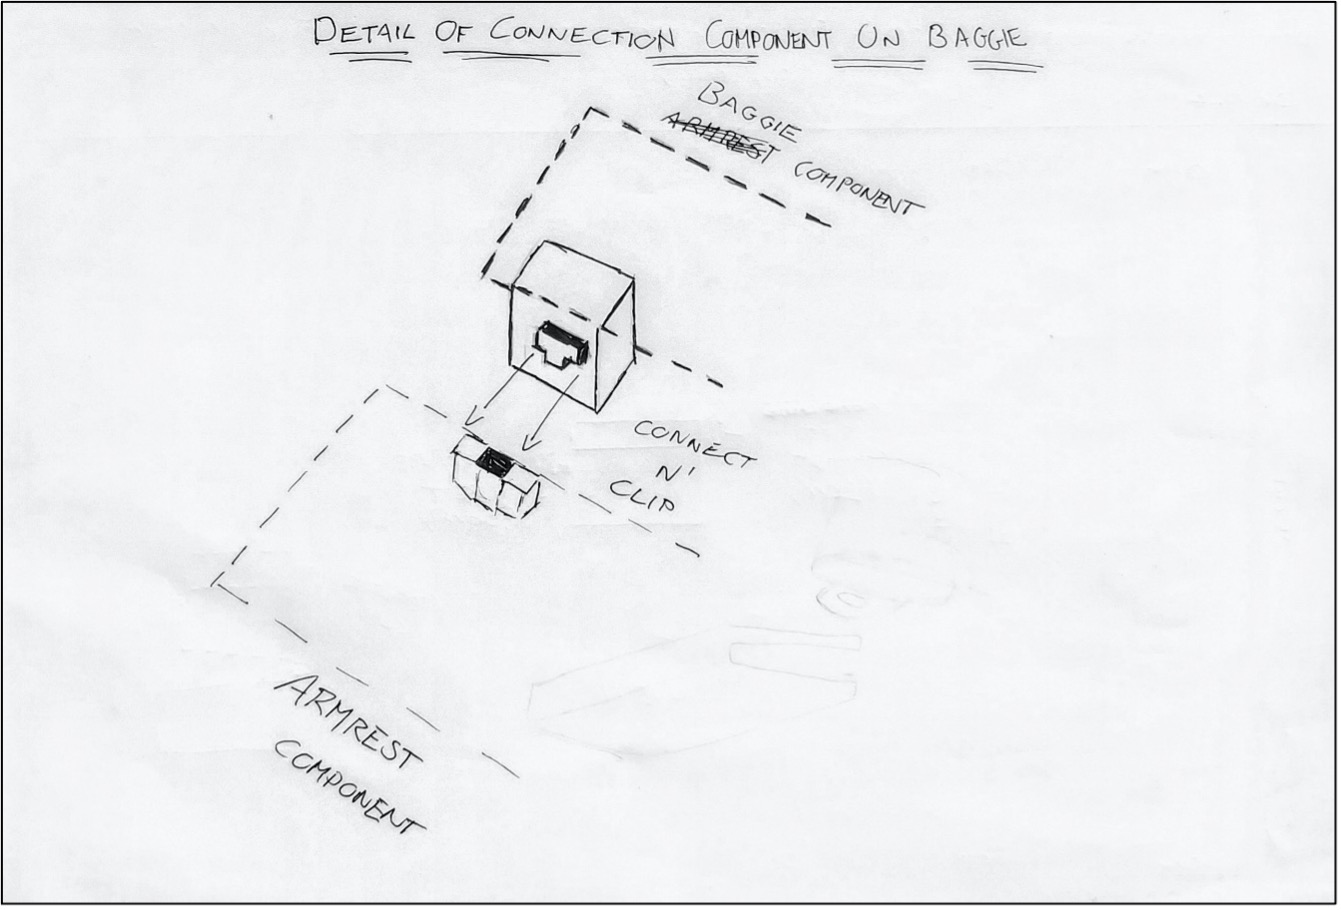 DETAIL OF CONNECTION COMPONENT ON BAGGIE
BAGGIE
ARMREST COMPONENT
CONNECT
N'
CLIP
ARMREST
COMPONENT